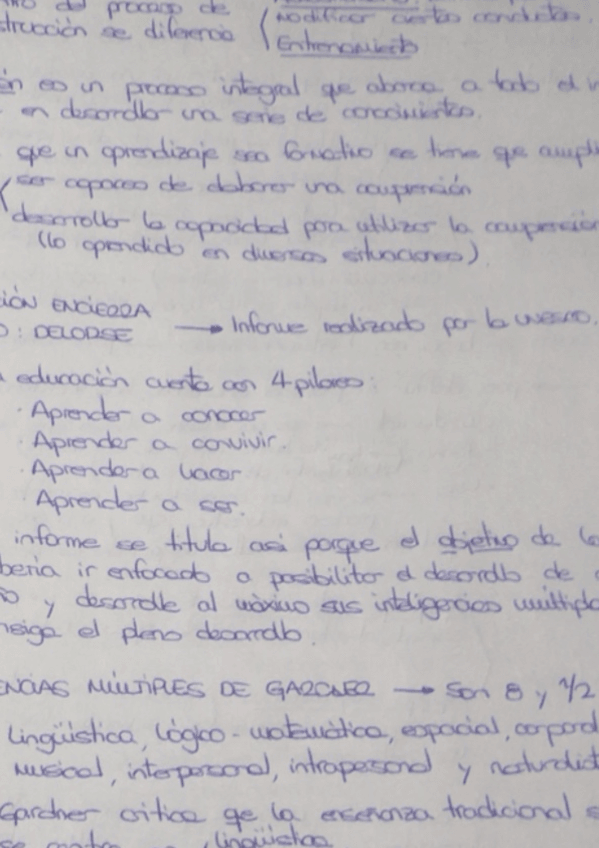 del proceso de
modificar ciertas conductas.
strucción se diferencia
Entrenamiento
ón es un proceso integral que abarca a todo el in
en desarrollo una serie de conocimientos.
que un aprendizaje sea formativo se tiene que cumpli
ser capaces de elaborar una comprensión
desarrollar la capacidad para utilizar la comprensión
(lo aprendido en diversas situaciones).
CIÓN ENCIERRA
O: DELORSE → Informe realizado por la UNESCO.
a educación cuenta con 4 pilares:
· Aprender a conocer
· Aprender a convivir.
· Aprender a hacer
Aprender a ser.
informe se titula así porque el objetivo de la
bería ir enfocado a posibilitar el desarrollo de
so y desarrolle al máximo sus inteligencias múltiple
nsiga el pleno desarrollo.
ENCIAS MÚLTIPLES DE GARDNER → Son 8 y 1/2
Lingüística, Lógico-matemática, espacial, corporal
Musical, interpersonal, intrapersonal y naturalist
Gardner critica qe la enseñanza tradicional s
lingüística